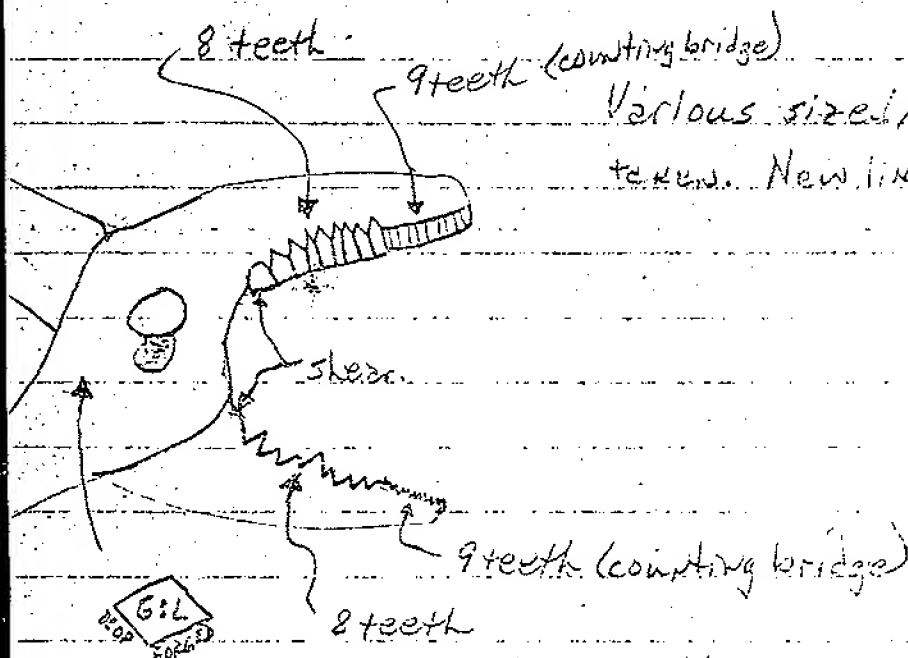 8 teeth
9 teeth (counting bridge)
Various sized,
New lin
shear.
9 teeth (counting bridge)
8 teeth
G:L
DROP
FORGED